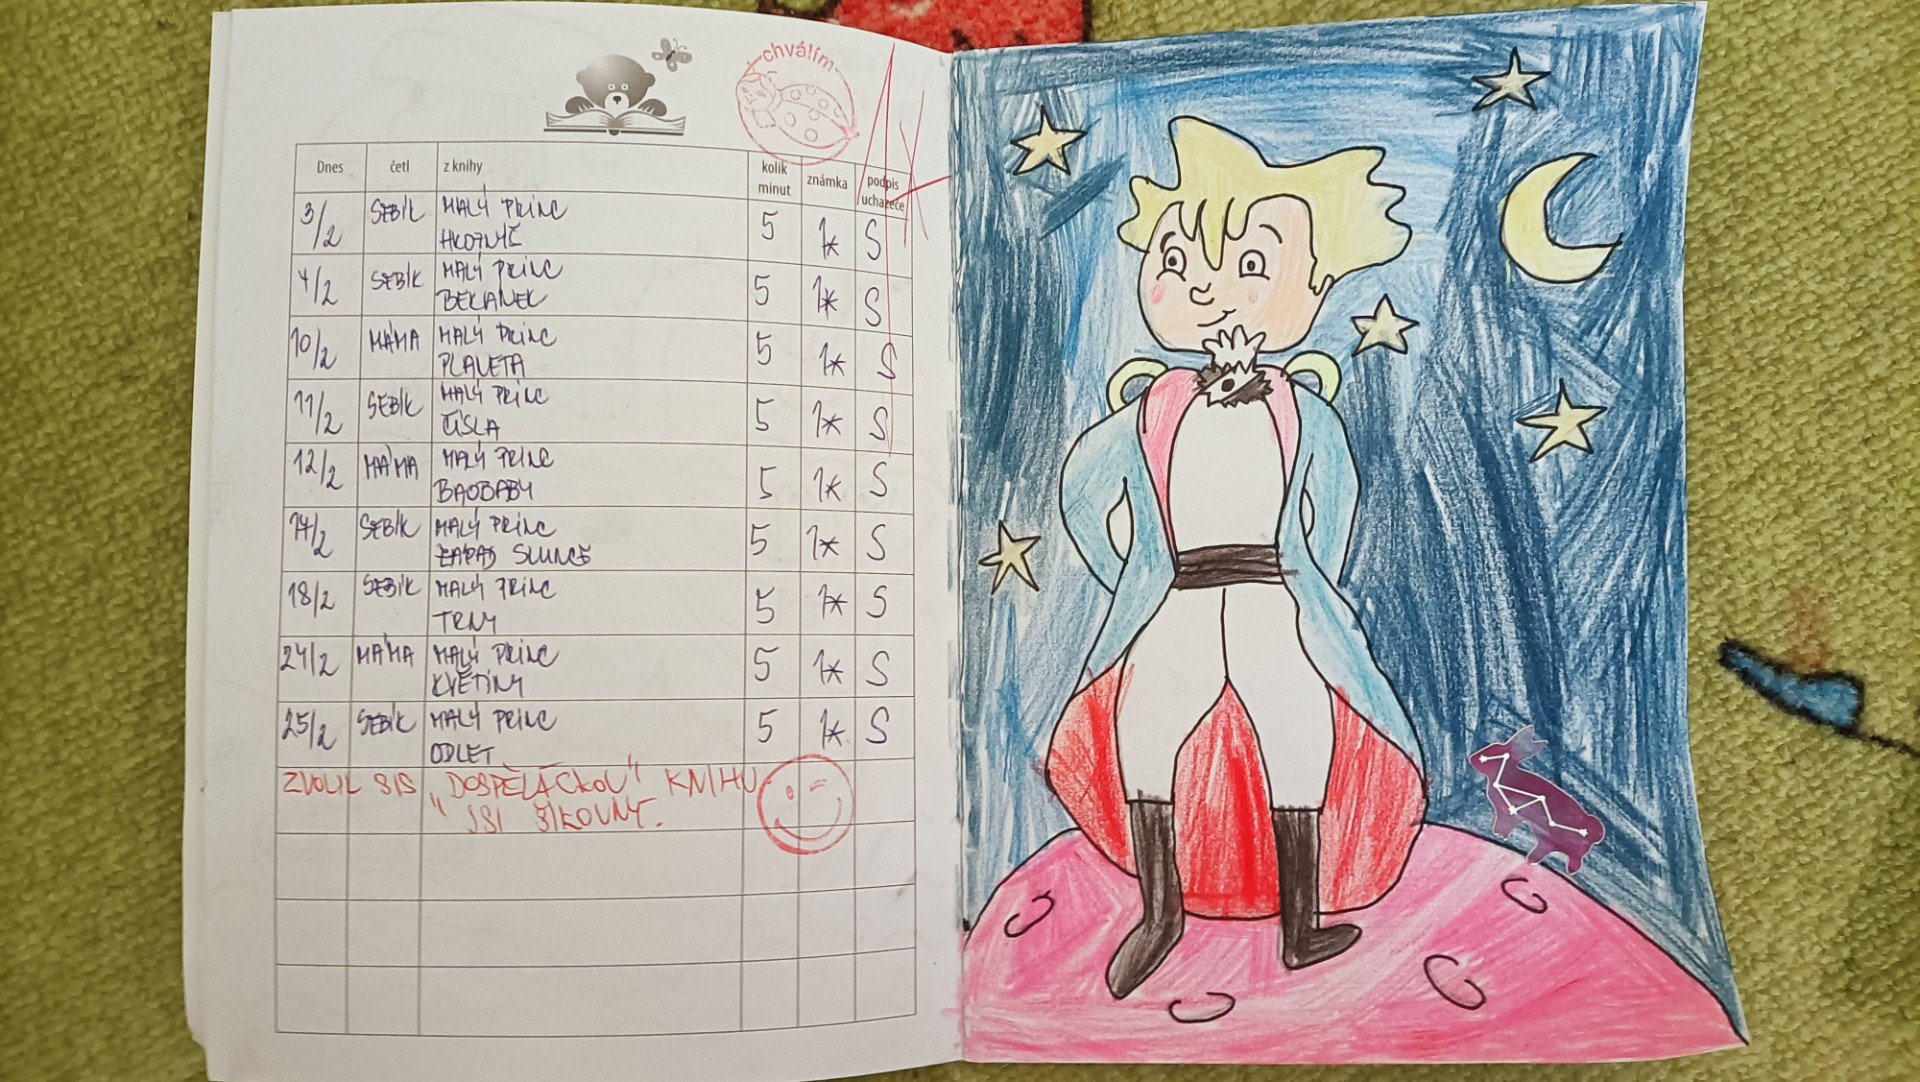 chválím
1*
Dnes četl z knihy kolik minut známka podpis uchazeče
3/2 SEBÍK MALÝ PRINC 5 1* S
HROZNÝŠ
4/2 SEBÍK MALÝ PRINC 5 1* S
BERÁNEK
10/2 MÁMA MALÝ PRINC 5 1* S
PLANETA
11/2 SEBÍK MALÝ PRINC 5 1* S
ČÍSLA
12/2 MÁMA MALÝ PRINC 5 1* S
BAOBABY
14/2 SEBÍK MALÝ PRINC 5 1* S
ZÁPAD SLUNCE
18/2 SEBÍK MALÝ PRINC 5 1* S
TRNY
24/2 MÁMA MALÝ PRINC 5 1* S
KVĚTINY
25/2 SEBÍK MALÝ PRINC 5 1* S
ODLET
ZVOLIL SIS „DOSPĚLÁCKOU" KNIHU
JSI ŠIKOVNÝ.